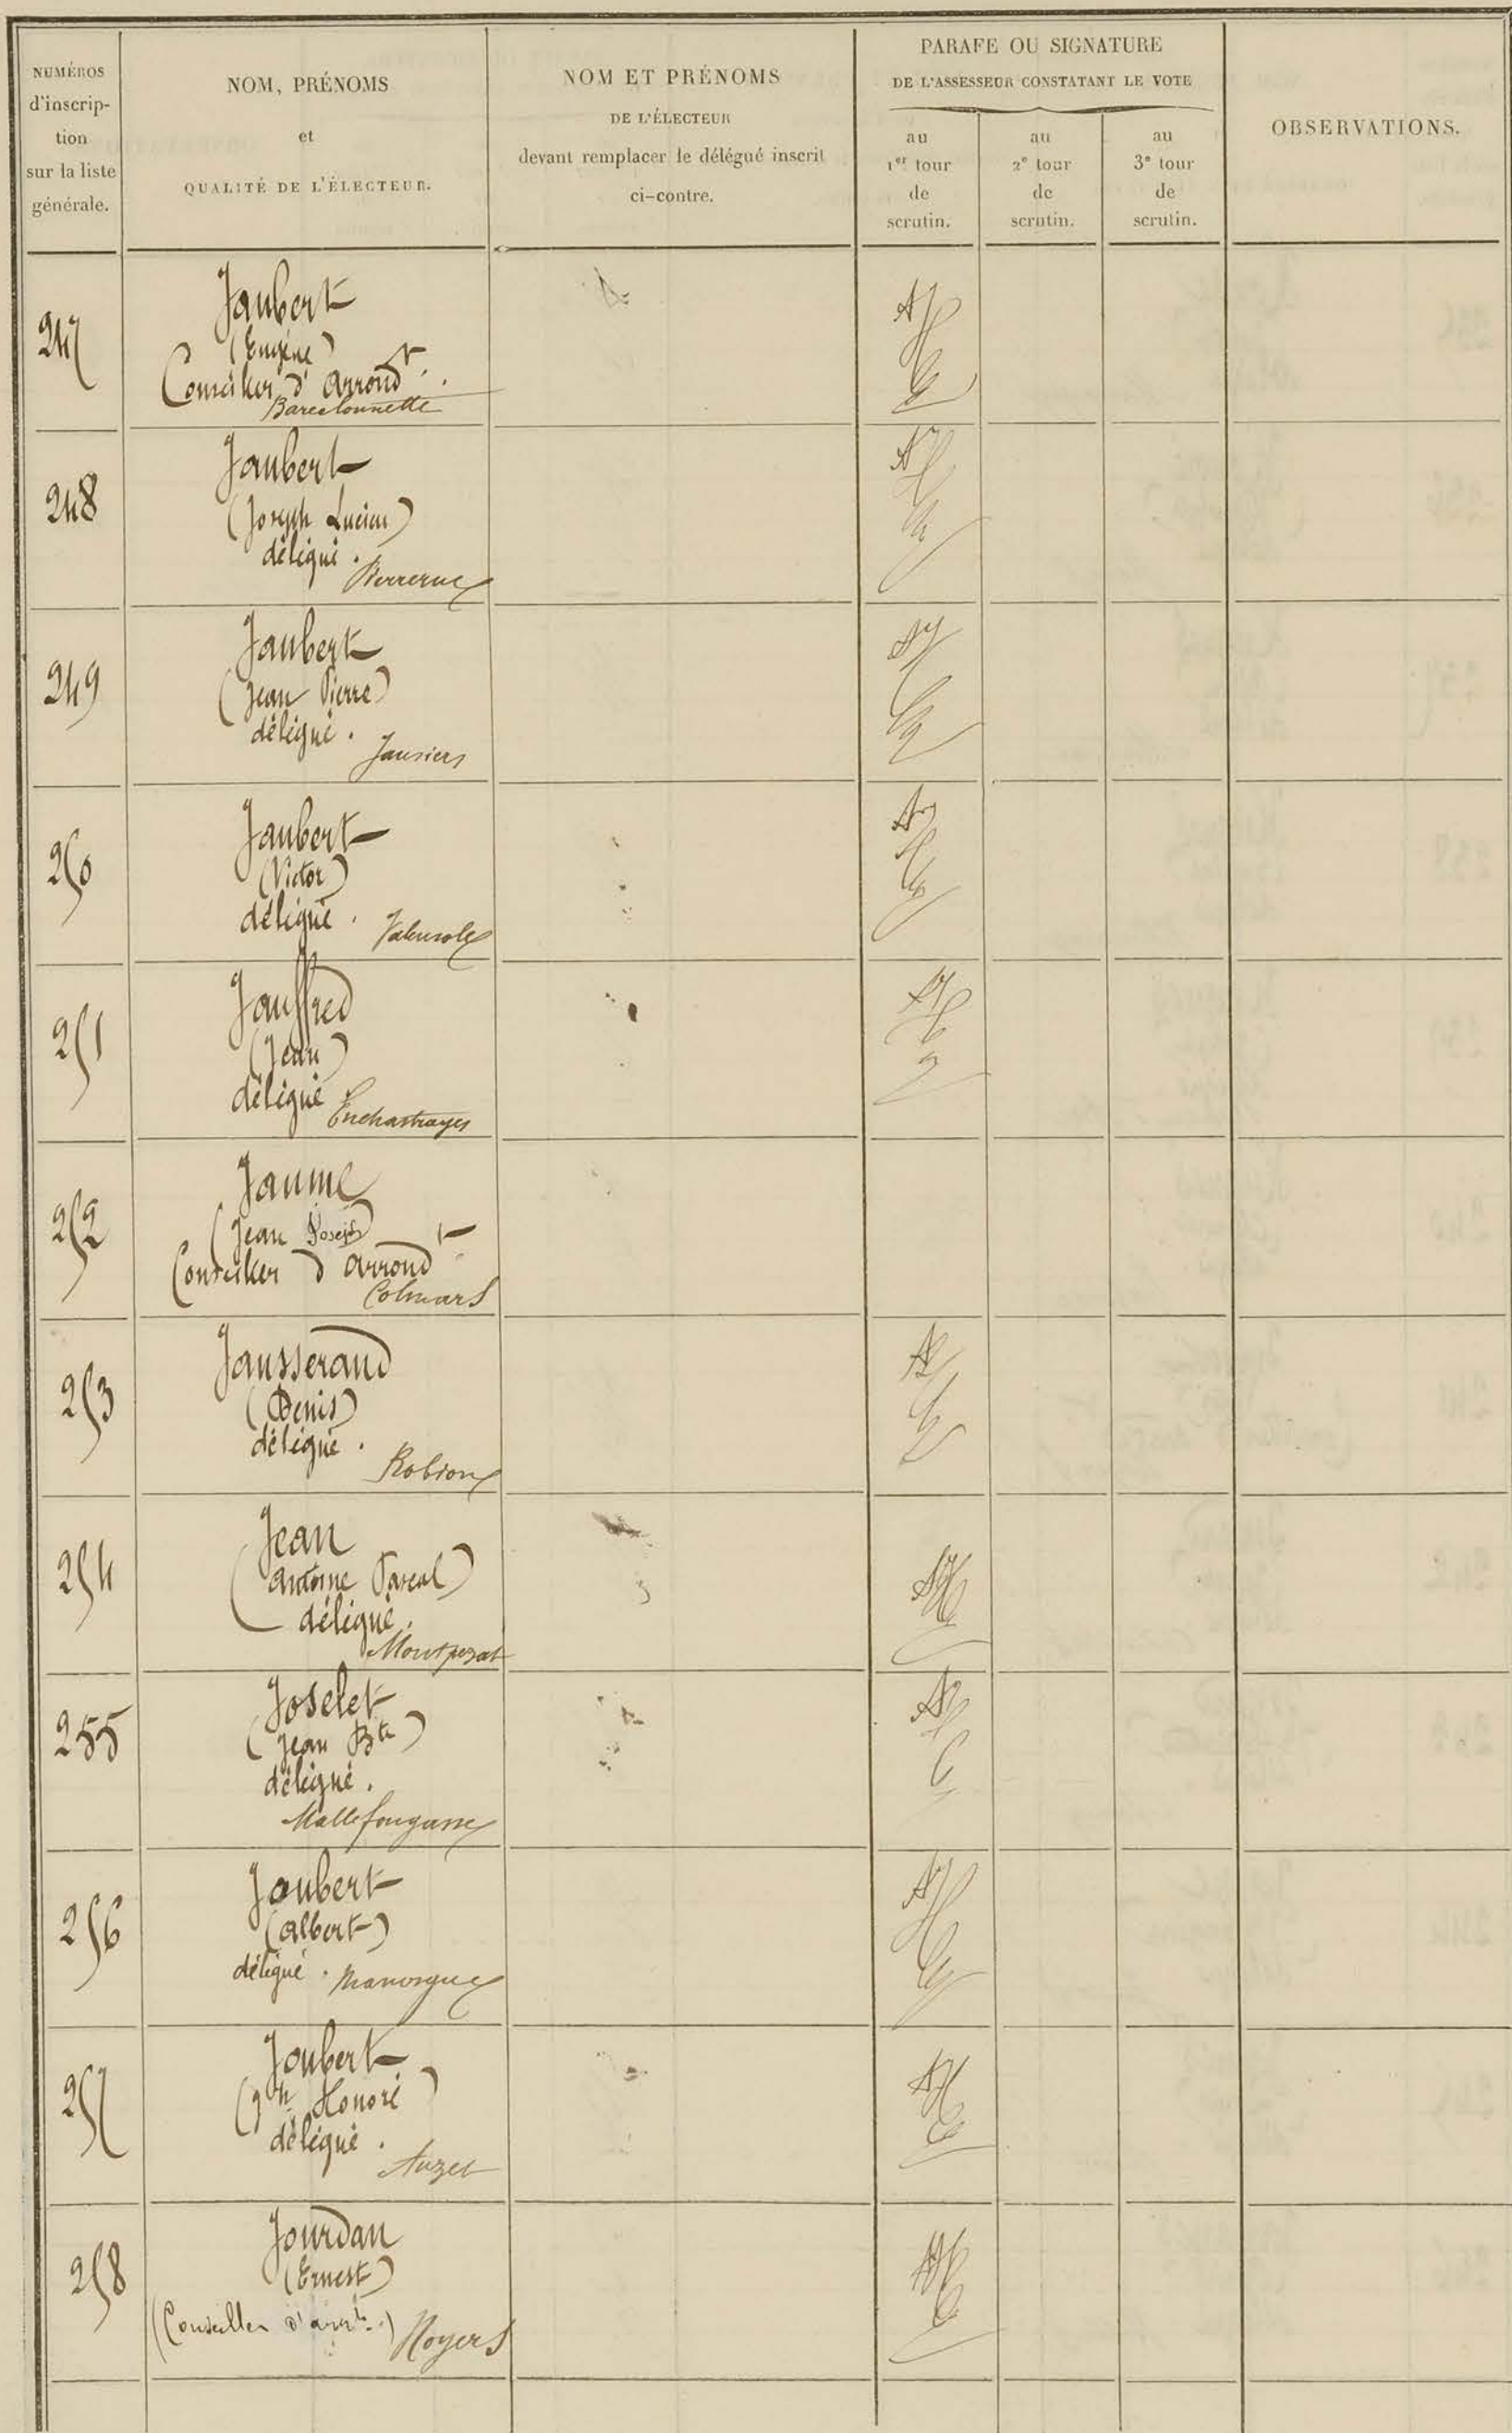 NUMÉROS
d'inscrip-
tion
sur la liste
générale.
NOM, PRÉNOMS
et
QUALITÉ DE L'ÉLECTEUR.
NOM ET PRÉNOMS
DE L'ÉLECTEUR
devant remplacer le délégué inscrit
ci-contre.
PARAFE OU SIGNATURE
DE L'ASSESSEUR CONSTATANT LE VOTE
au
1er tour
de
scrutin.
au
2e tour
de
scrutin.
au
3e tour
de
scrutin.
OBSERVATIONS.
247
Jaubert
(Eugène)
Conseiller d'arrondt.
Barcelonnette
248
Jaubert
(Joseph Lucien)
délégué.
Pierrerue
249
Jaubert
(Jean Pierre)
délégué.
Jausiers
250
Jaubert
(Victor)
délégué.
Valensole
251
Jauffred
(Jean)
délégué
Enchastrayes
252
Jaume
(Jean Joseph)
Conseiller d'arrondt
Colmars
253
Jausserand
(Denis)
délégué.
Robion
254
Jean
(Antoine Pascal)
délégué.
Montpezat
255
Joselet
(Jean Bte)
délégué.
Mallefougasse
256
Joubert
(Albert)
délégué. Manosque
257
Joubert
(Jh Honoré)
délégué.
Auzet
258
Jourdan
(Ernest)
(Conseiller d'arrt.) Noyers